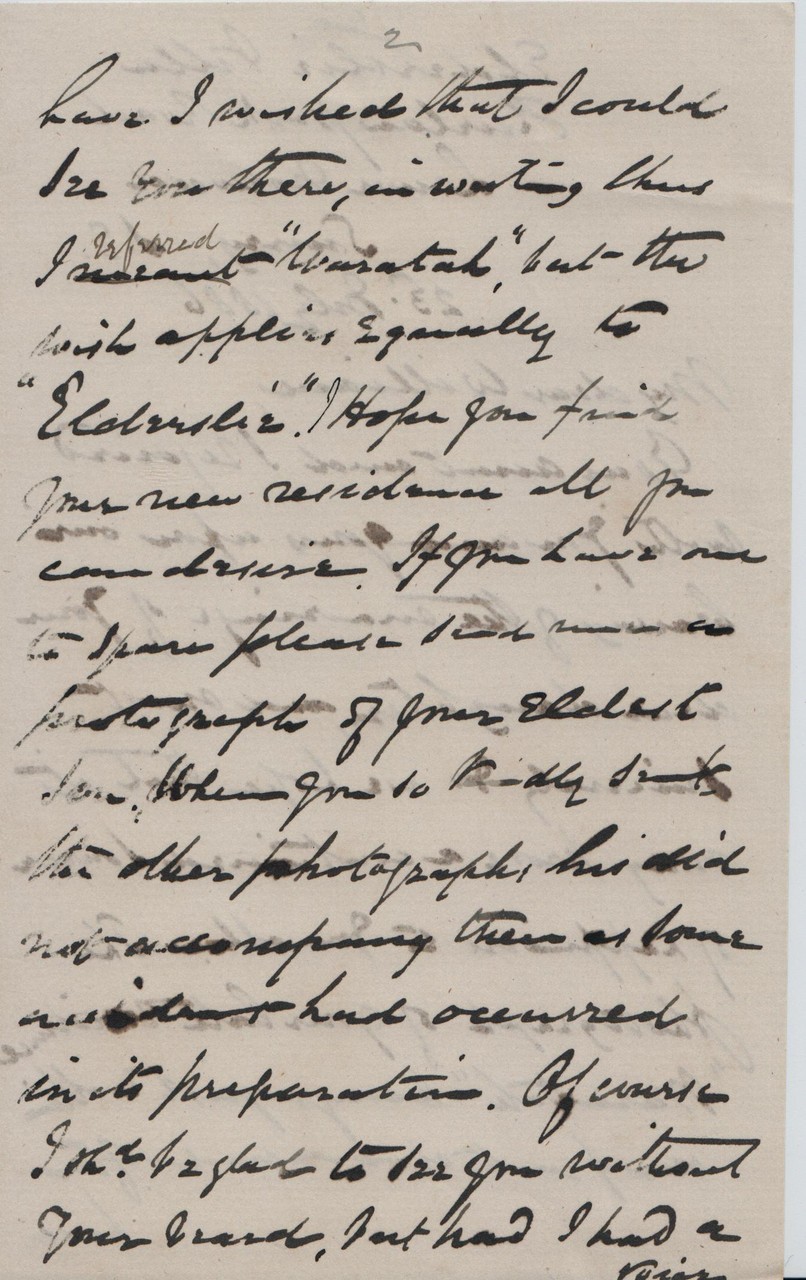 2
have I wished that I could
see you there, in writing thus
referred
I meant "Waratah", but the
wish applies equally to
"Elderslie". I Hope you find
your new residence all you
can desire. If you have one
to spare please send me a
photograph of your Eldest
son. When you so kindly sent
the other photographs his did
not accompany them as some
accident had occurred
in its preparation. Of course
I shd. be glad to see you without
your beard, but had I had a
voice